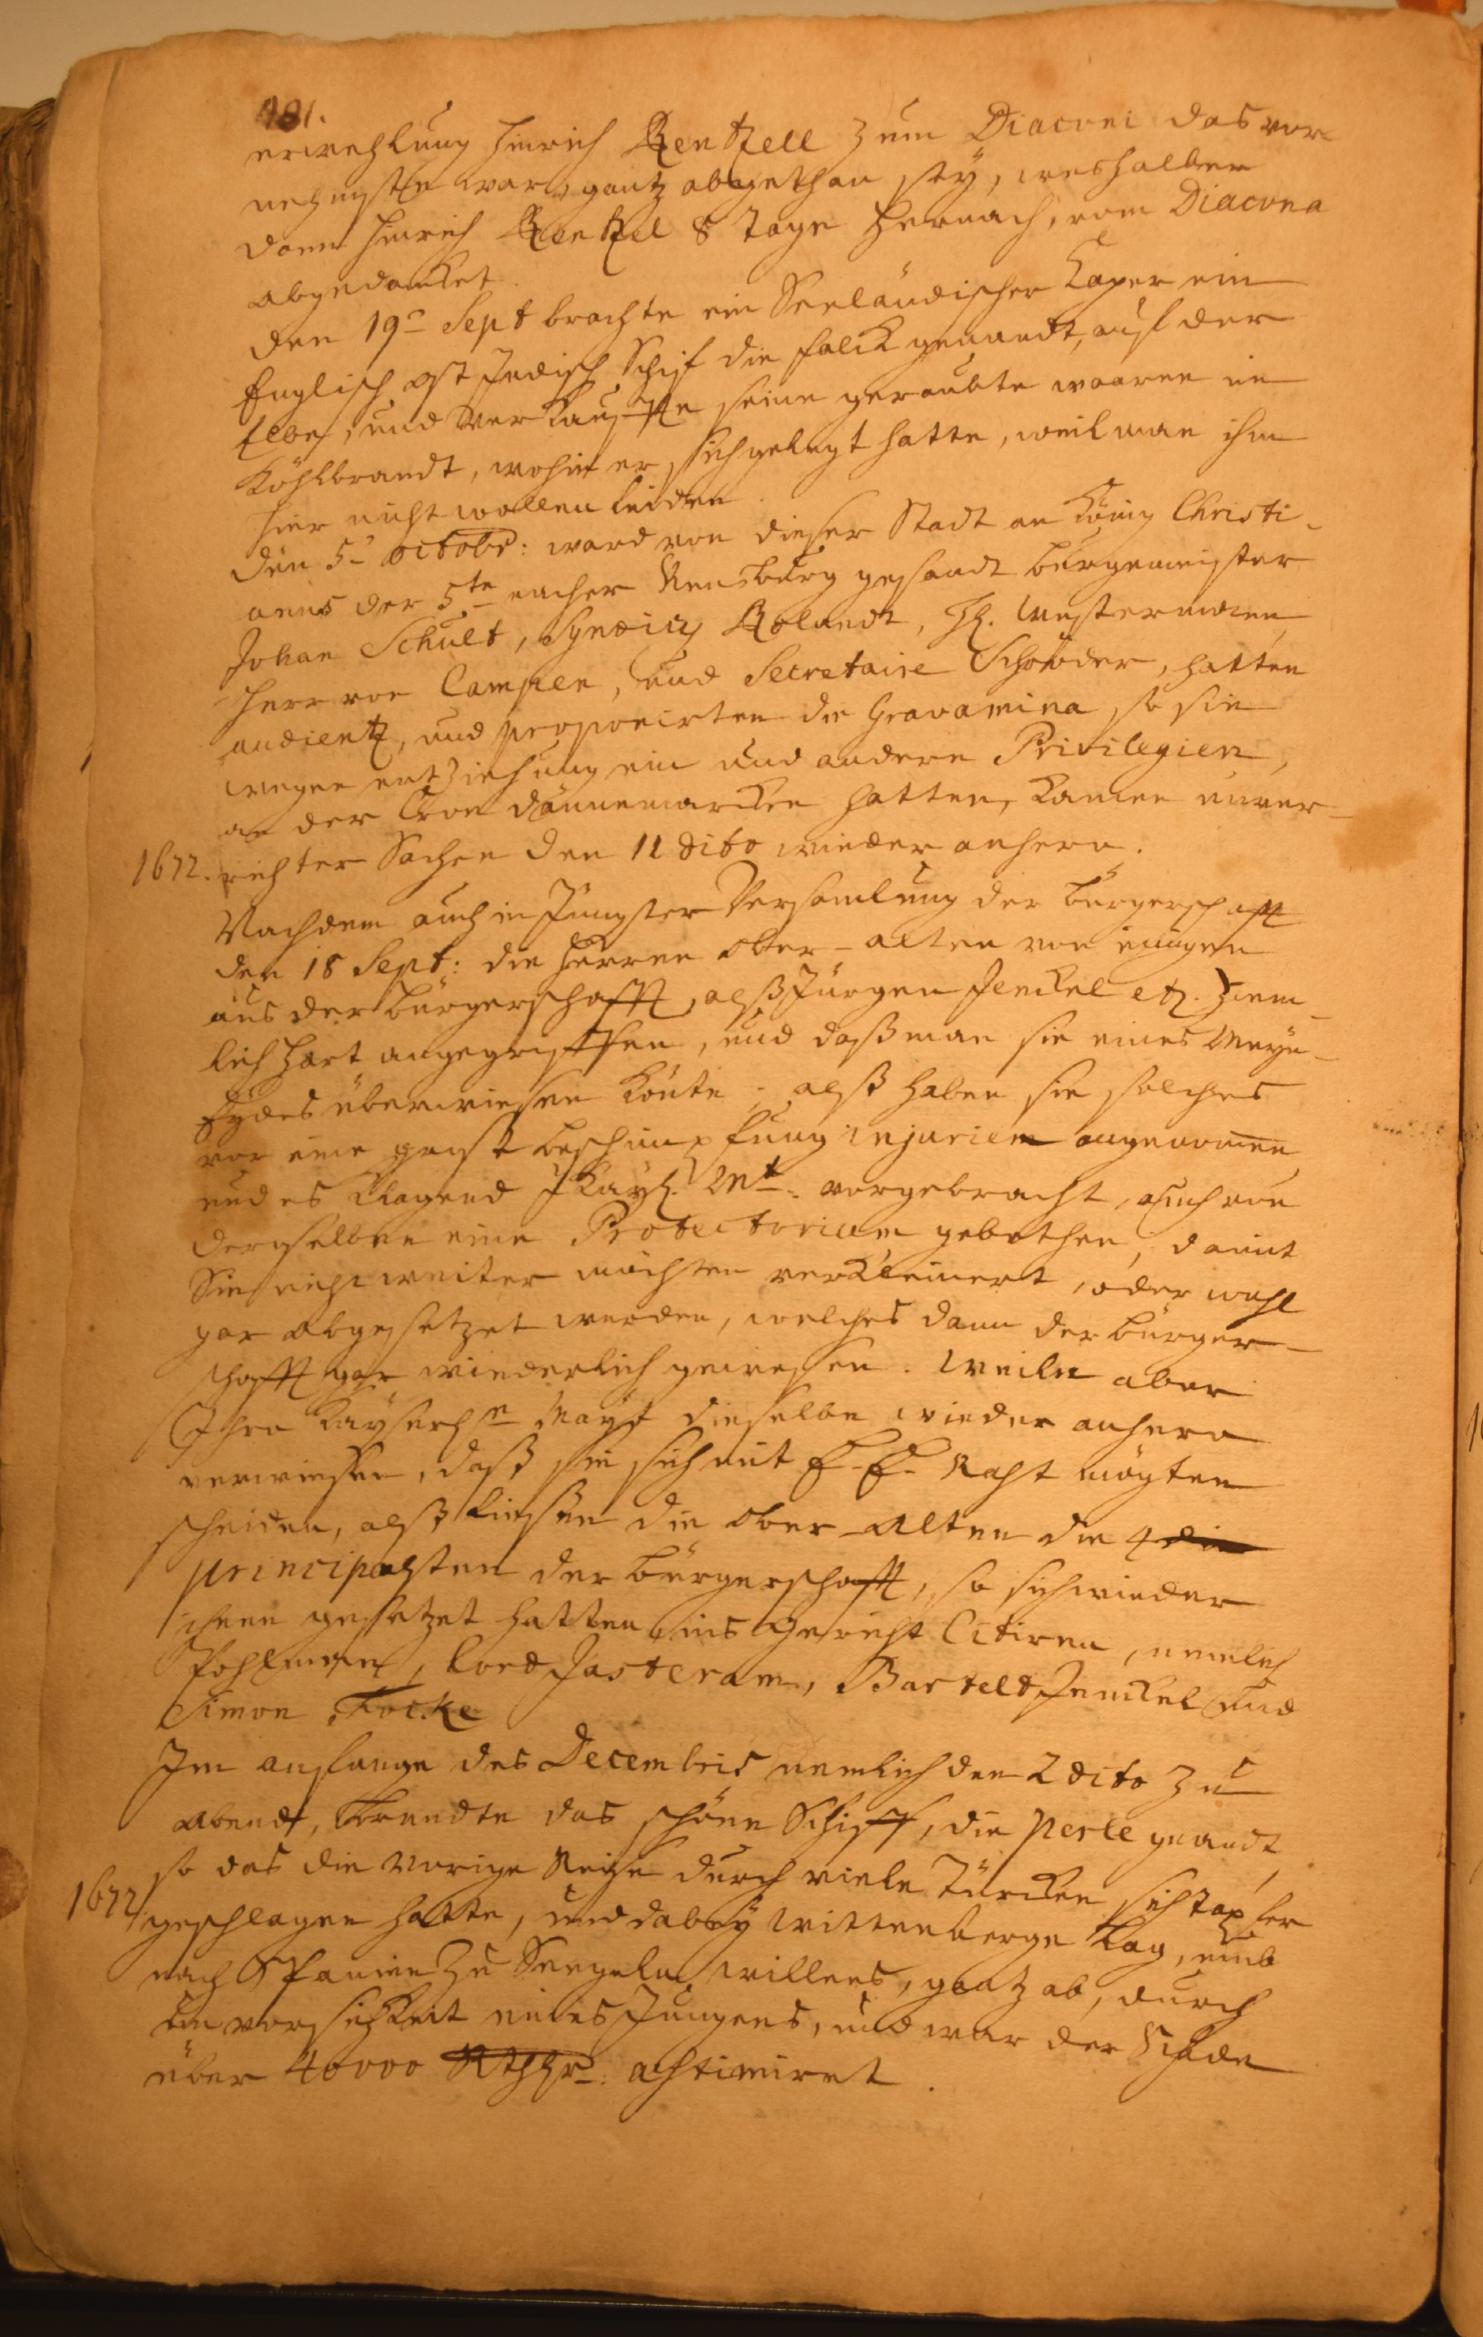 481.
erwehlung Hinrich Rentzell zum Diaconi das vor
nehmste war, gantz abgethan sey, weshalben
dann Hinrich Rentzel 8 Tage hernach, vom Diacona
abgedancket.
den 19n Sept brachte ein Seeländischer Caper ein
Englisch Ost Indisch Schif die Falck genandt, auf der
Elbe, und verkauffte seine geraubte waaren im
Köhlbrandt, wohin er sich gelegt hatte, weil man ihm
hier nicht wollen leiden.
den 5n Octobr: ward von dieser Stadt an König Christi-
anus der 5te nacher Rensburg gesandt bürgemeister
Johan Schult, Syndicg Rolandt, H. Westermann
Herr von Campen, und Secretaire Schröder, hatten
audientz, und proponirten die Gravamina so sie
wegen entziehung ein und andern Privilegien,
an der Cron Dännemarcken hatten, kamen unver-
1672. richter Sachen den 11 dito wieder anhero.
Nachdem auch in Jüngster Versamlung der bürgerschafft
den 18 Sept: die Herren Ober-alten von einigen
aus der bürgerschafft, alß Jürgen Jenckel etz. Ziem-
lich hart angegriffen, und daß man sie eines Meyn-
Eydes überweisen könte, alß haben sie solches
vor eine grost beschimpfung injurien angenomen
und es klagend I Kayß. Mt. vorgebracht, auch von
derselben eine Protectorium gebethen, damit
Sie nicht weiter möchten verkleinert, oder wohl
gar abgesetzet werden, welches dann der bürger-
schafft gar wiederlich gewesen. Weiln aber
Ihro Kayserln Mayt dieselbe wieder anhero
verwiessen, daß sie sich mit E. E. Raht mögten
scheiden, alß liessen die Ober-Alten die 4 die
principalsten der bürgerschafft, so sich wieder
ihnen gesetzet hatten ins Gericht Citiren, nemlich
Pohlman, Cord Jasteram, Bartelt Jenckel und
Simon Focke
Im anfange des Decembris nemlich den 2 dito zu
abendt, brandte das schöne Schiff, die Perle genandt
so das die vorige Reise durch viele Türcken sich tapfer
1672 geschlagen hatte, und dabey Wittenberge lag, umb
nach Spanien zu Seegeln willens, gantz ab, durch
unvorsichkeit eines Jungens, und war der Schade
über 40000 Rthlr: æstimiret.